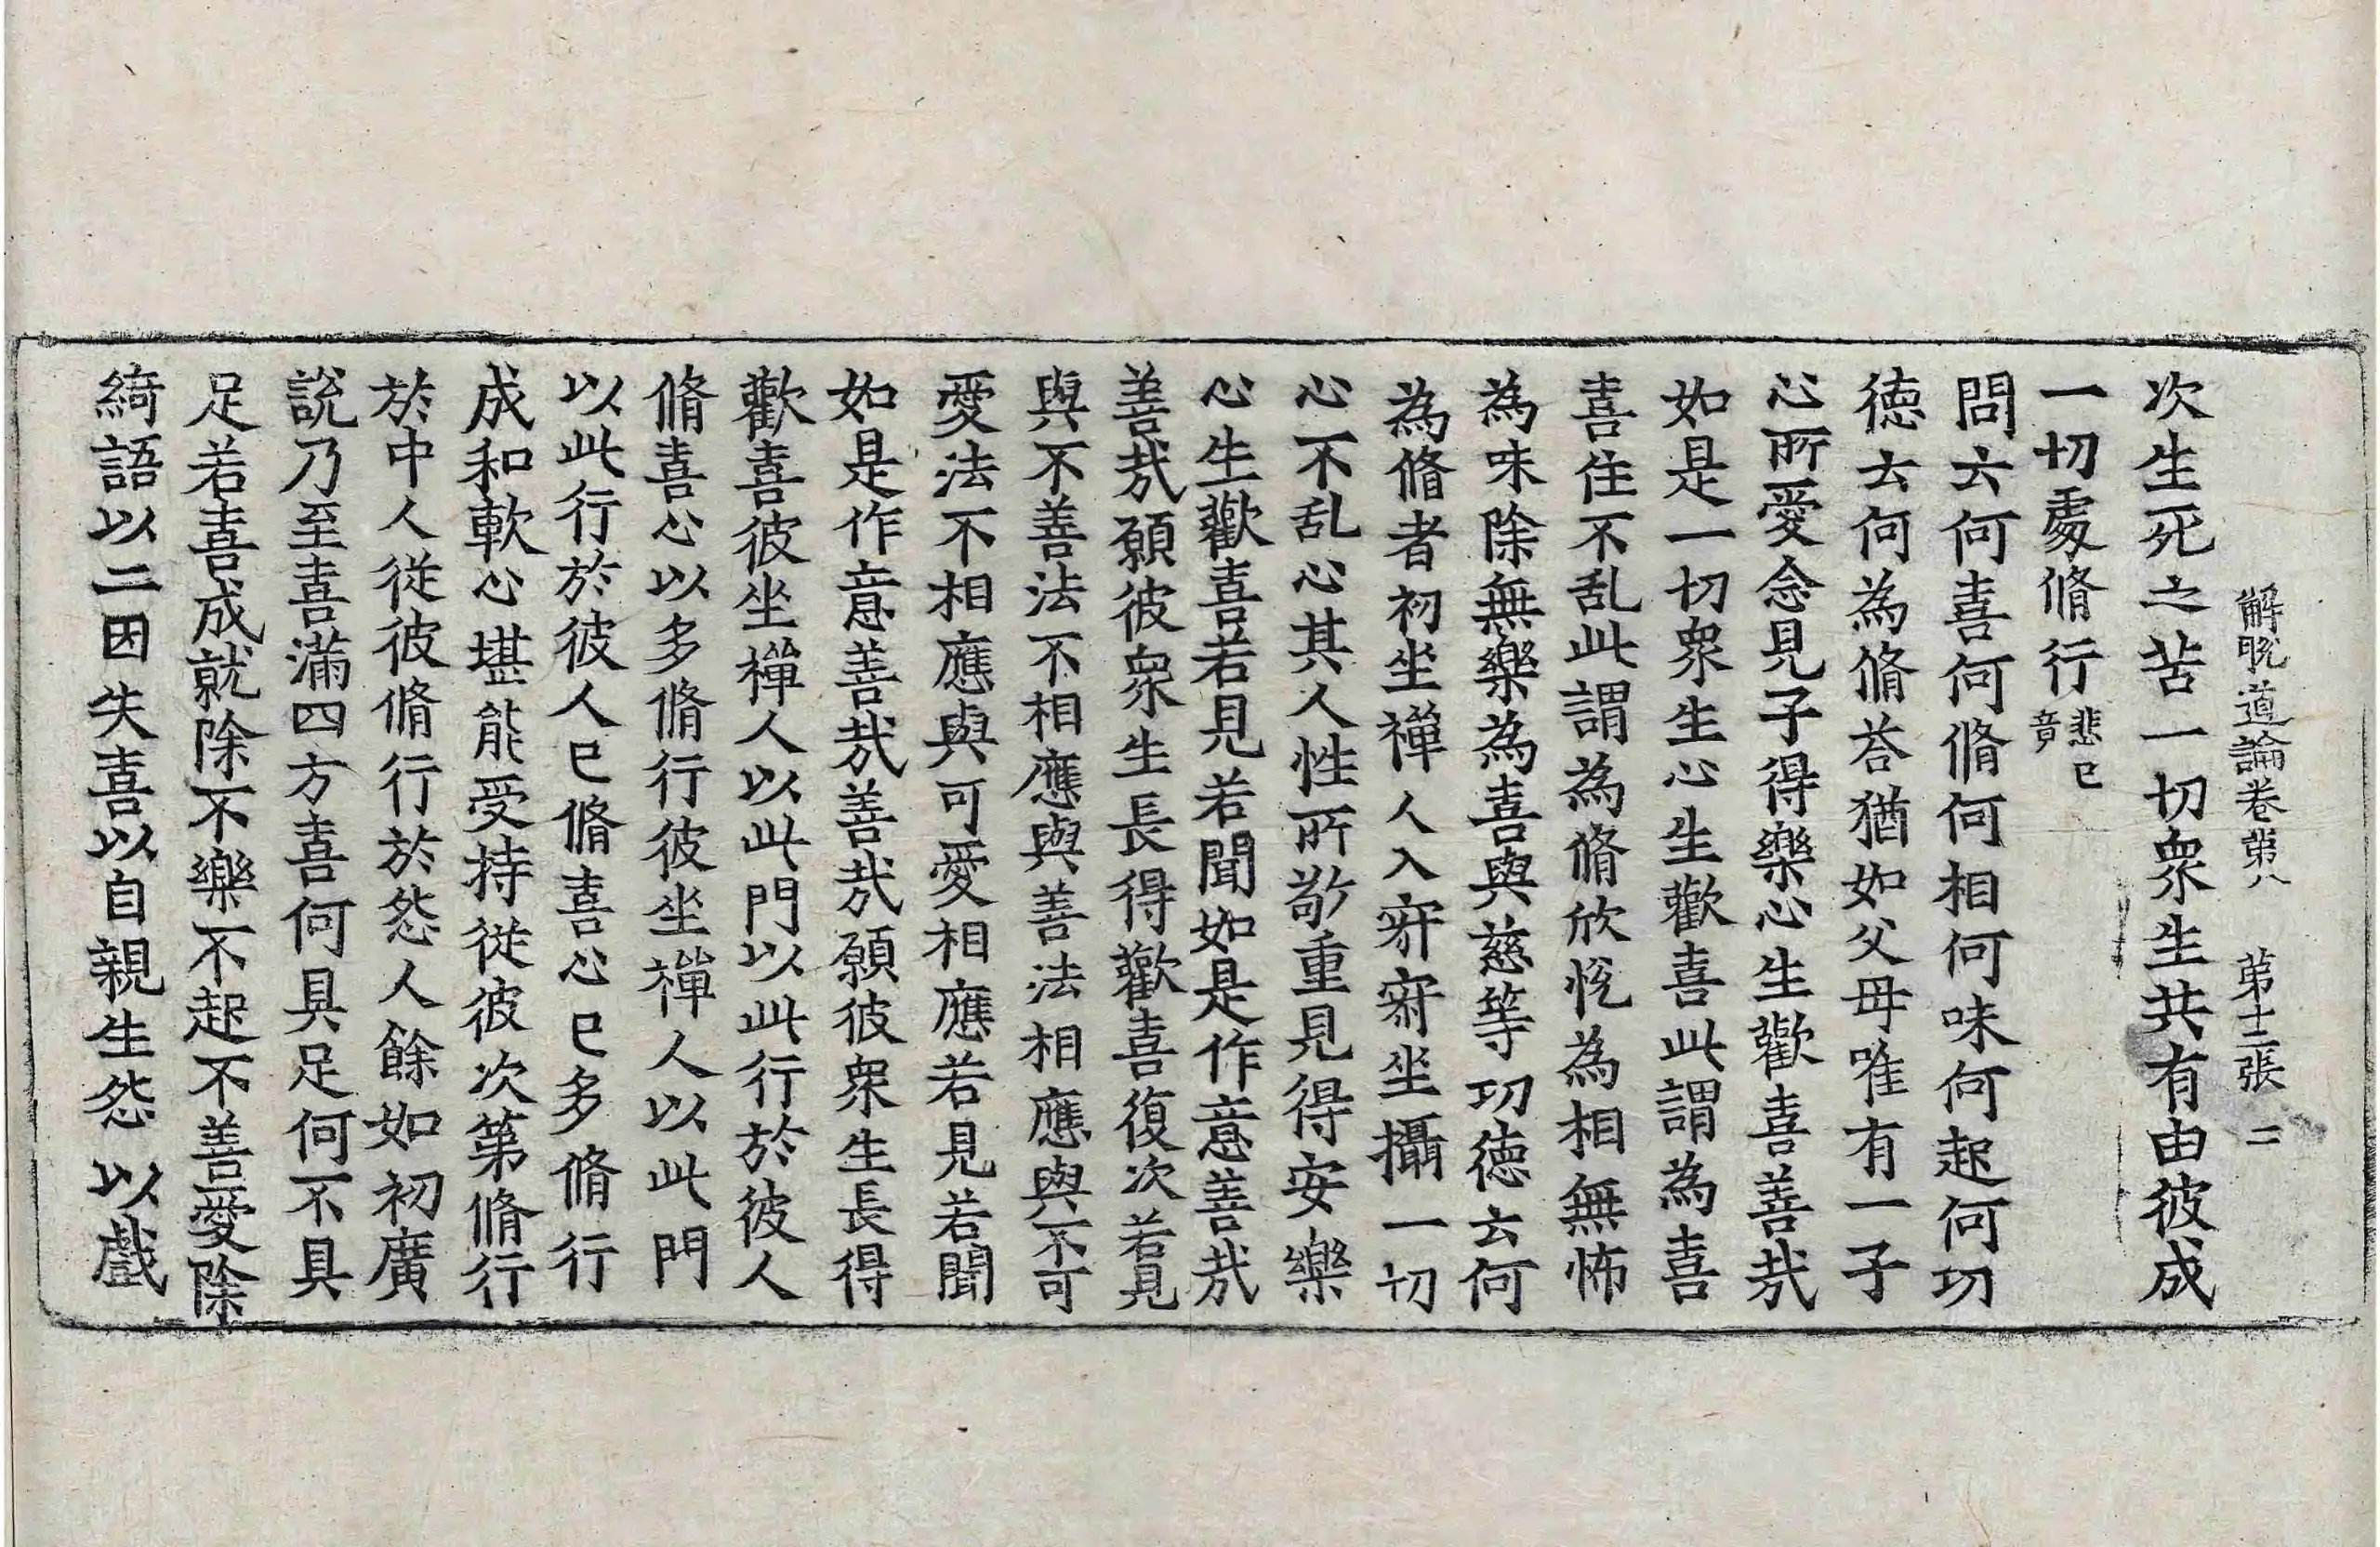 解脫道論卷第八　第十二張　二
次生死之苦一切衆生共有由彼成
一切處脩行悲已竟
問云何喜何脩何相何味何起何功
徳云何為脩荅猶如父母唯有一子
心所愛念見子得樂心生歡喜善㢤
如是一切衆生心生歡喜此謂為喜
喜住不乱此謂為脩欣悅為相無怖
為味除無樂為喜與慈等功徳云何
為脩者初坐禪人入寂寂坐攝一切
心不乱心其人性所敬重見得安樂
心生歡喜若見若聞如是作意善㢤
善㢤願彼衆生長得歡喜復次若見
與不善法不相應與善法相應與不可
愛法不相應與可愛相應若見若聞
如是作意善㢤善㢤願彼衆生長得
歡喜彼坐禪人以此門以此行於彼人
脩喜心以多脩行彼坐禪人以此門
以此行於彼人已脩喜心已多脩行
成和軟心堪能受持從彼次第脩行
於中人從彼脩行於怨人餘如初廣
說乃至喜滿四方喜何具足何不具
足若喜成就除不樂不起不善愛除
綺語以二因失喜以自親生怨以戲